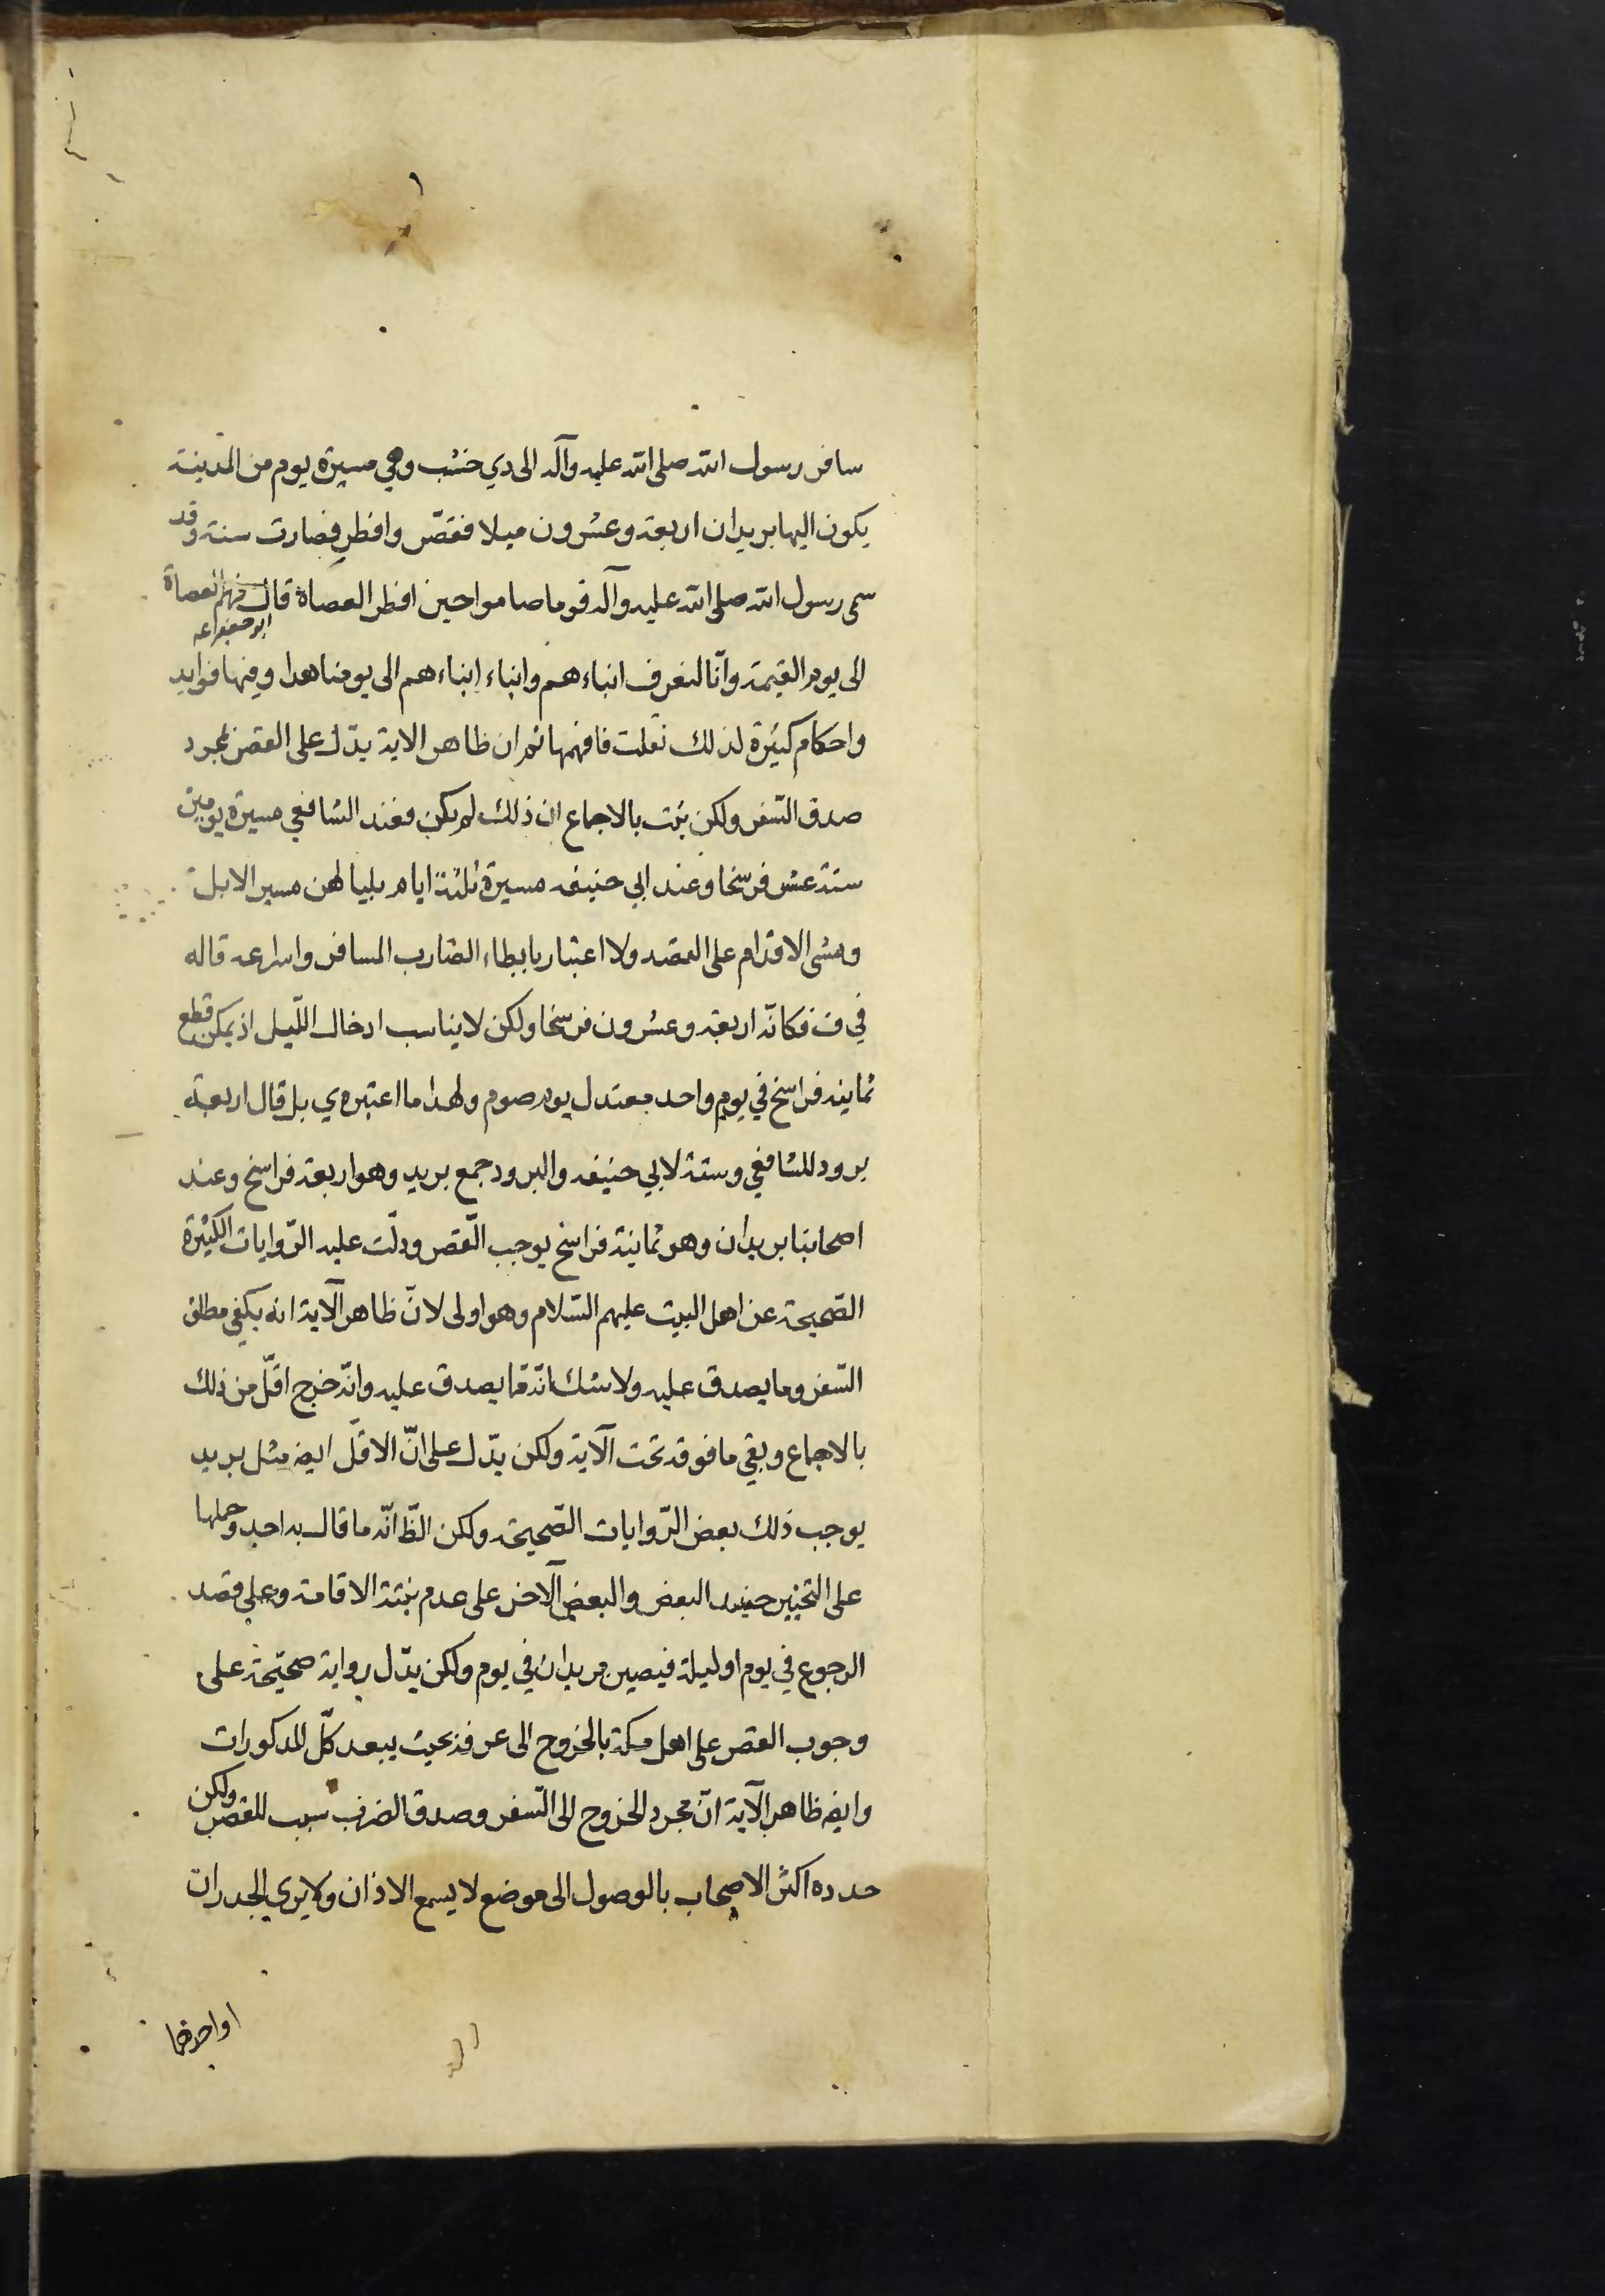 سافر رسول الله صلى الله عليه وآله الى دي خشب وهي مسيرة يوم من المدينة
يكون اليها بريدان اربعة وعشرون ميلا فقصّر وافطر فصارت سنة وقد
سمى رسول الله صلى الله عليه وآله قوما صاموا حين افطر العصاة قال فهم العصاة
ابو جعفر ع
الى يوم القيمة وانّا لنعرف ابناءهم وابناء ابناءهم الى يومنا هدا وفيها فوايد
واحكام كثيرة لذلك نقلت فافهمها ثم ان ظاهر الاية يدّل على القصر بمجرد
صدق السّفر ولكن ثبت بالاجماع ان ذلك لم يكن فعند الشافعي مسيرة يومين
ستة عشر فرسخا وعند ابي حنيفه مسيرة ثلثة ايام بلياليهن مسير الابل
ومشى الاقدام على القصد ولا اعتبار بابطاء الضارب المسافر واسراعه قاله
في ف فكانّه اربعة وعشرون فرسخا ولكن لا يناسب ادخال اللّيل اذ يمكن قطع
ثمانية فراسخ في يوم واحد معتدل يوم صوم ولهذا ما اعتبره ي بل قال اربعة
برود للشافعي وستة لابي حنيفه والبرود جمع بريد وهو اربعة فراسخ وعند
اصحابنا بريدان وهو ثمانية فراسخ يوجب القصر ودلّت عليه الرّوايات الكثيرة
الصّحيحة عن اهل البيت عليهم السّلام وهو اولى لانّ ظاهر الآية انه يكفي مطلق
السّفر وما يصدق عليه ولا شك انّه ممّا يصدق عليه وانّه خرج اقلّ من ذلك
بالاجماع وبقي ما فوقه تحت الآية ولكن يدّل على انّ الاقلّ ايضه مثل بريد
يوجب ذلك بعض الرّوايات الصّحيحة ولكن الظّ انّه ما قال به احد وحملها
على التخيير البعض والبعض الآخر على عدم نيّة الاقامة وعلى قصد
الرجوع في يوم او ليلة فيصير بريدان في يوم ولكن يدّل رواية صحيحة على
وجوب القصر على اهل مكة بالخروج الى عرفة بحيث يبعد كلّ المدكورات
وايضه ظاهر الآية انّ مجرد الخروج الى السّفر وصدق الضرب سبب للقصر ولكن
حدده اكثر الاصحاب بالوصول الى موضع لا يسمع الاذان ولا يرى الجدران
او احدهما